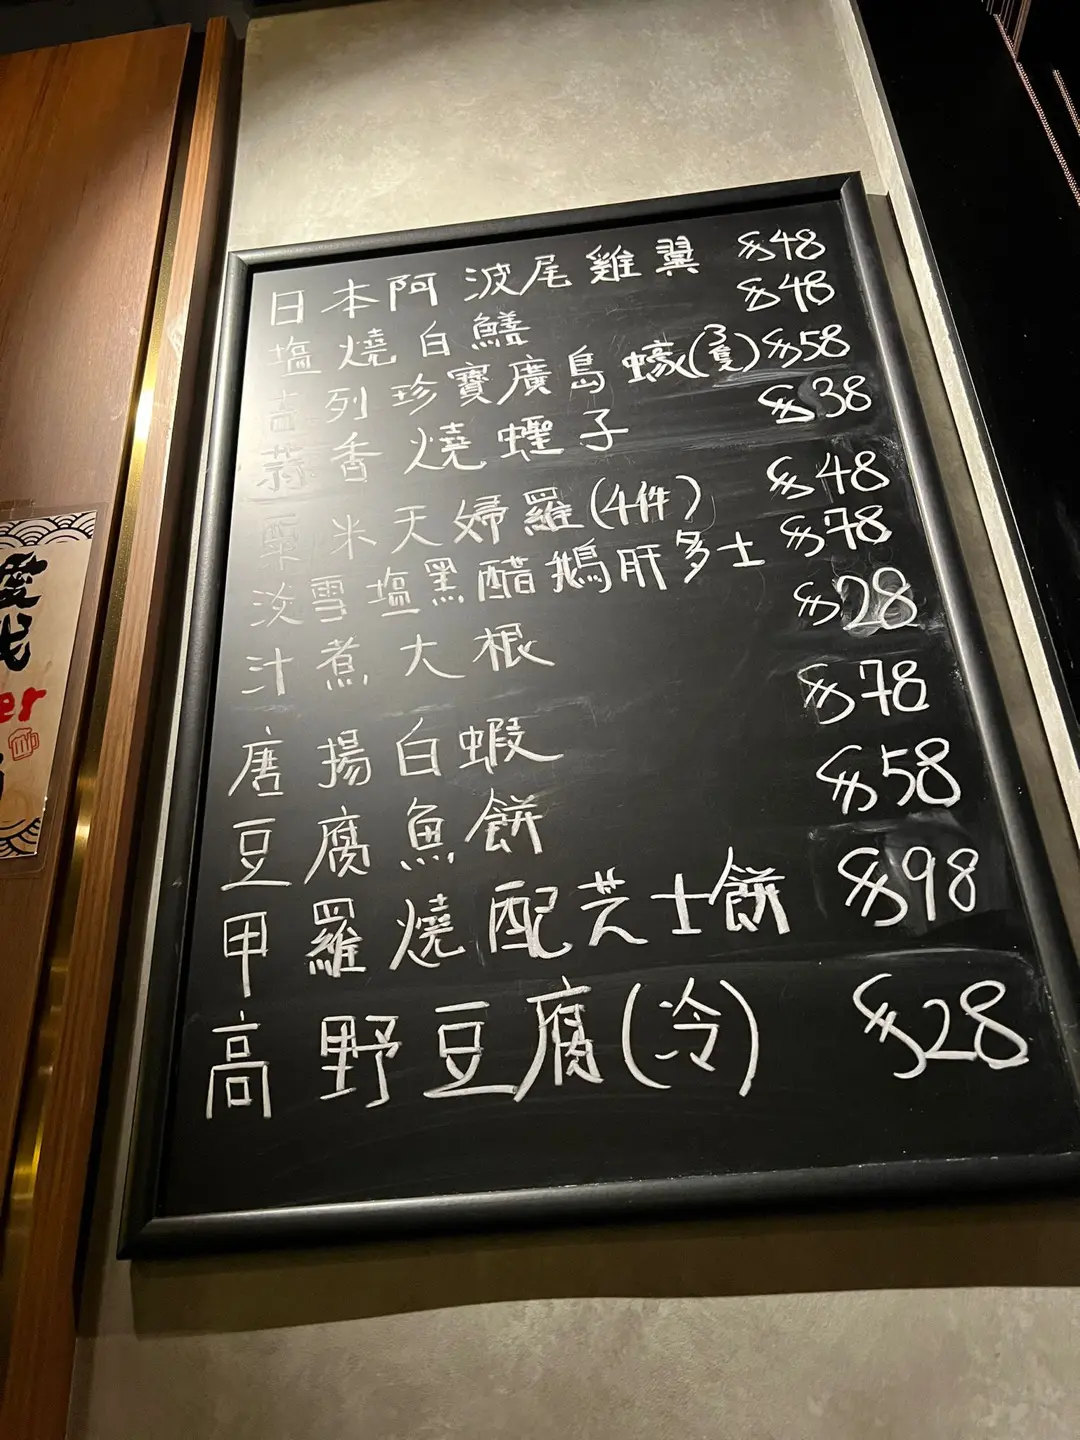 日本阿波尾雞翼 $48
塩燒白鱔 $48
吉列珍寶廣島蠔(3隻) $58
蒜香燒蟶子 $38
粟米天婦羅(4件) $48
淡雪塩黑醋鵝肝多士 $78
汁煮大根 $28
唐揚白蝦 $78
豆腐魚餅 $58
甲羅燒配芝士餅 $98
高野豆腐(冷) $28
er